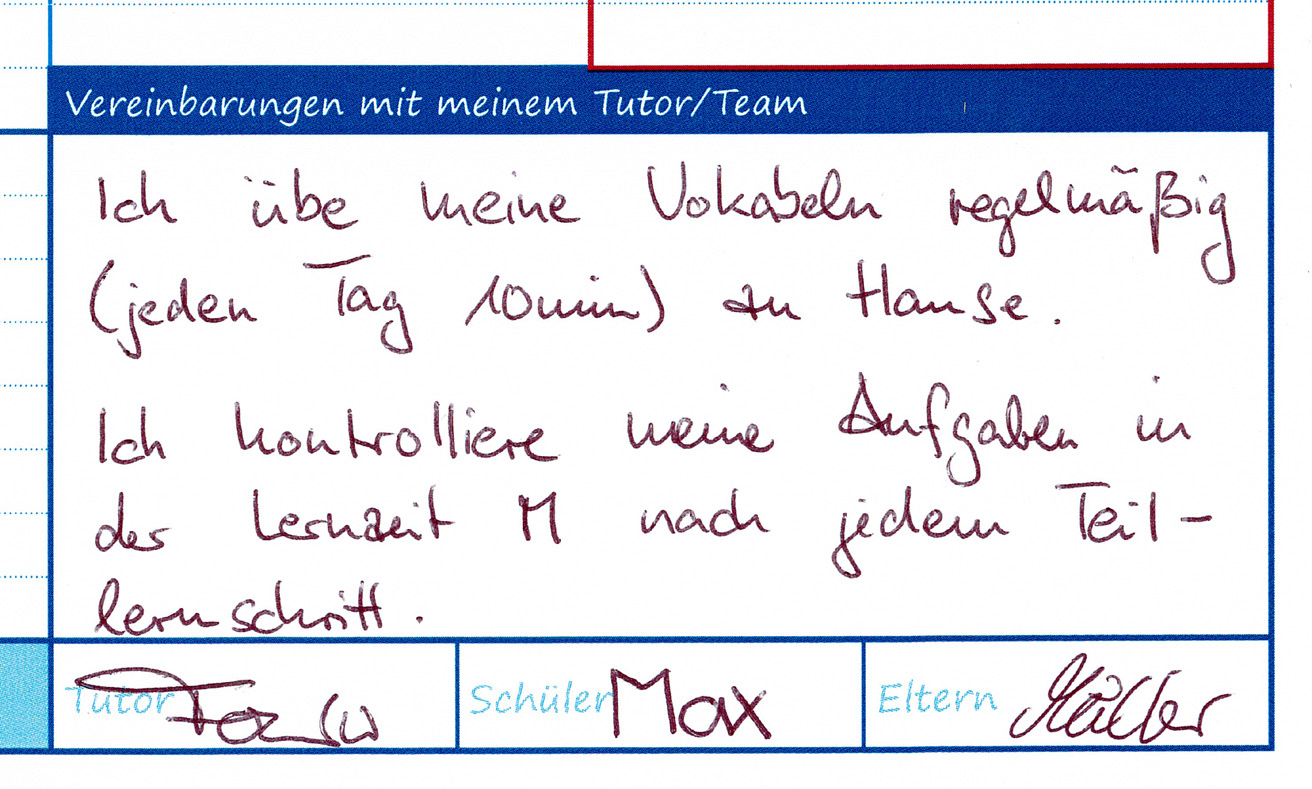 Vereinbarungen mit meinem Tutor/Team
Ich übe meine Vokabeln regelmäßig
(jeden Tag 10min) zu Hause.
Ich kontrolliere meine Aufgaben in
der Lernzeit M nach jedem Teil-
lernschritt.
Tutor Schüler Max Eltern Müller